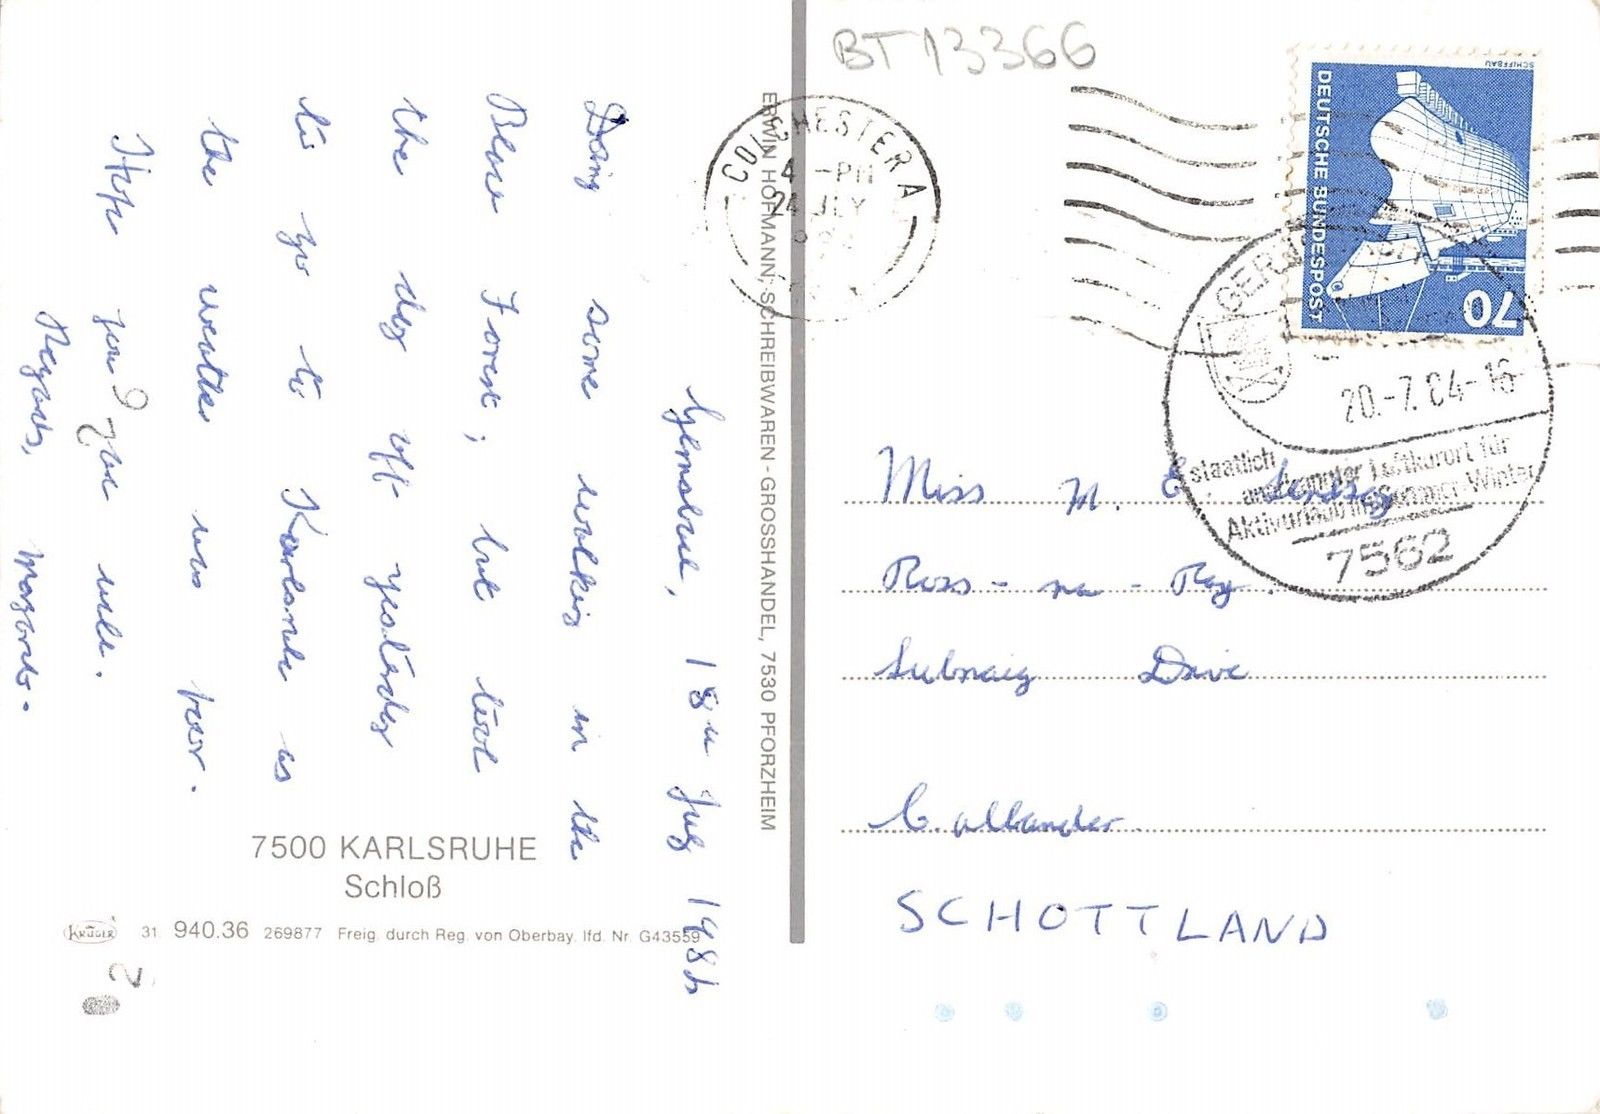 BT13366
SCHIFFBAU
DEUTSCHE BUNDESPOST
70
COLCHESTER A
4 -PM
24 JLY
20.-7.84-16
staatlich
anerkannter Luftkurort für
Aktivurlaub im Sommer-Winter
7562
Gernsbach, 18th July 1984
Doing some walking in the
Black Forest, but took
the day off yesterday
to go to Karlsruhe as
the weather was poor.
Hope you are well.
Regards,
Margarete.
Miss M. E. Lindsay
Ross-na-Rig.
Lubnaig Drive
Callander
SCHOTTLAND
ERWIN HOFMANN, SCHREIBWAREN-GROSSHANDEL, 7530 PFORZHEIM
7500 KARLSRUHE
Schloß
KRÜGER 31 940.36 269877 Freig. durch Reg. von Oberbay. lfd. Nr. G43559
2